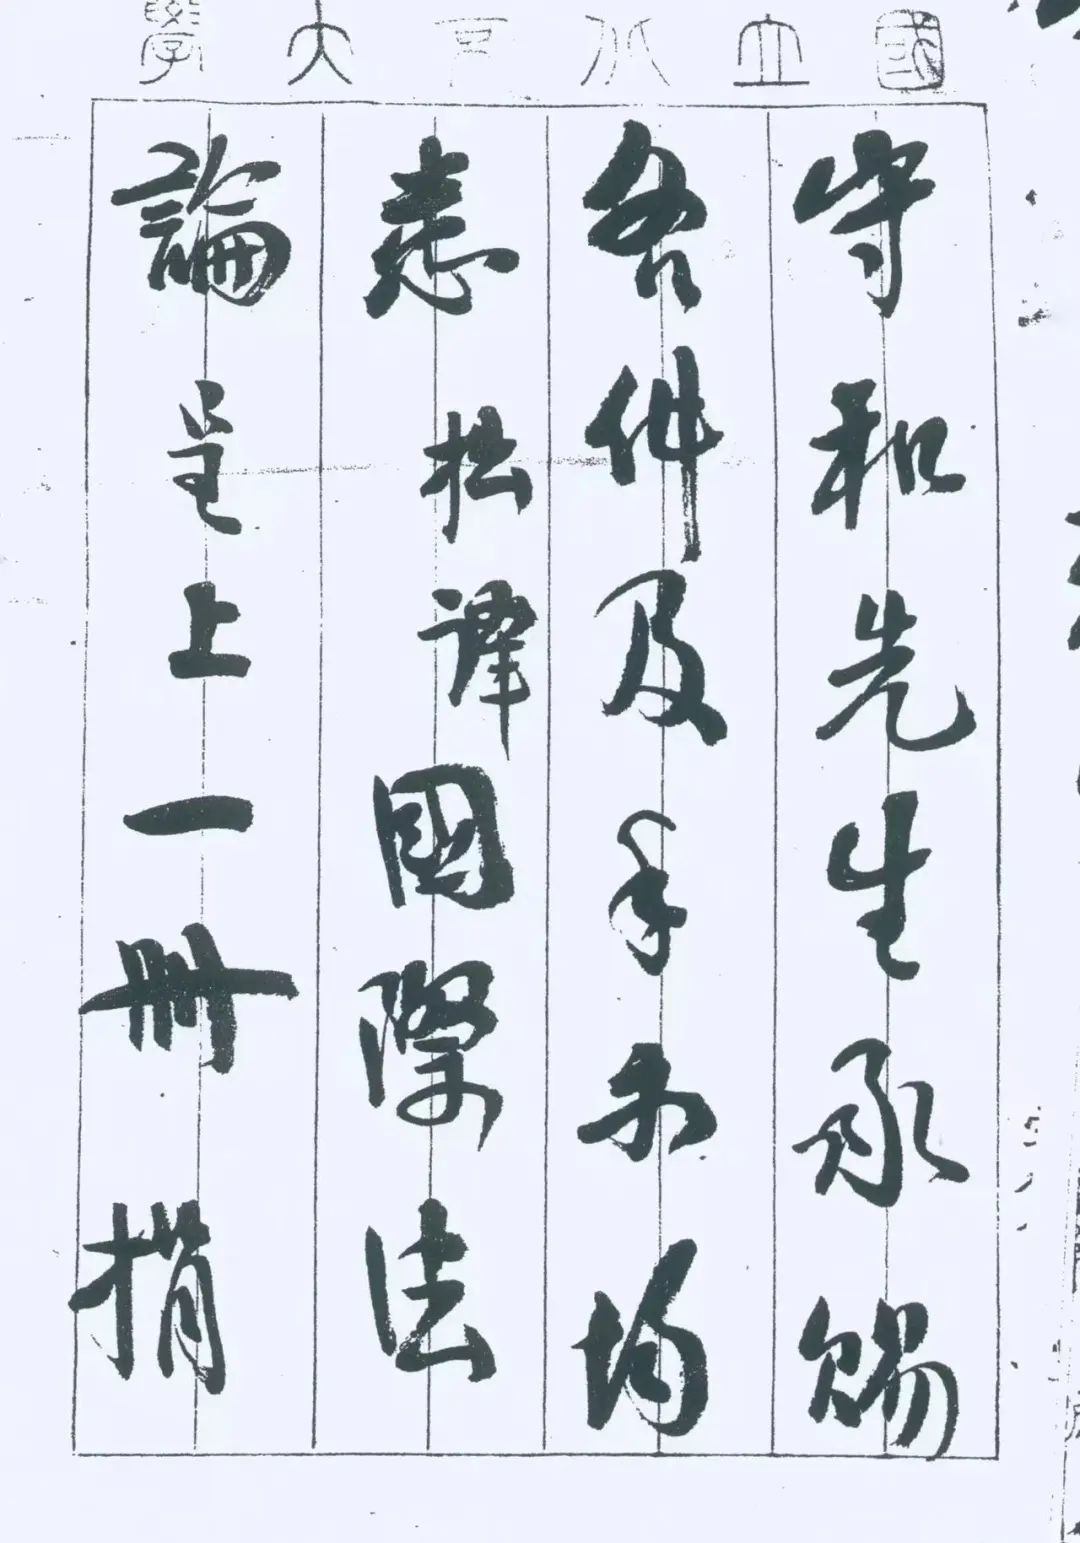 國立北大學
守和先生承賜
各件及手示均
悉拙譯國際法
論呈上一冊捐